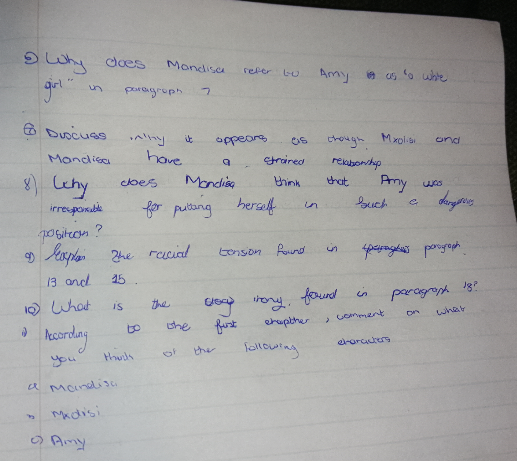 5) Why does Mandisa refer to Amy as "a white
girl" in paragraph 7
7) Discuss why it appears as though Mxolisi and
Mandisa have a strained relationship
8) Why does Mandisa think that Amy was
irresponsible for putting herself in such a dangerous
position?
9) Explain the racial tension found in paragraph
13 and 15.
10) What is the irony found in paragraph 18?
11) According to the first chapther, comment on what
you think of the following characters
a) Mandisa
b) Mxolisi
c) Amy